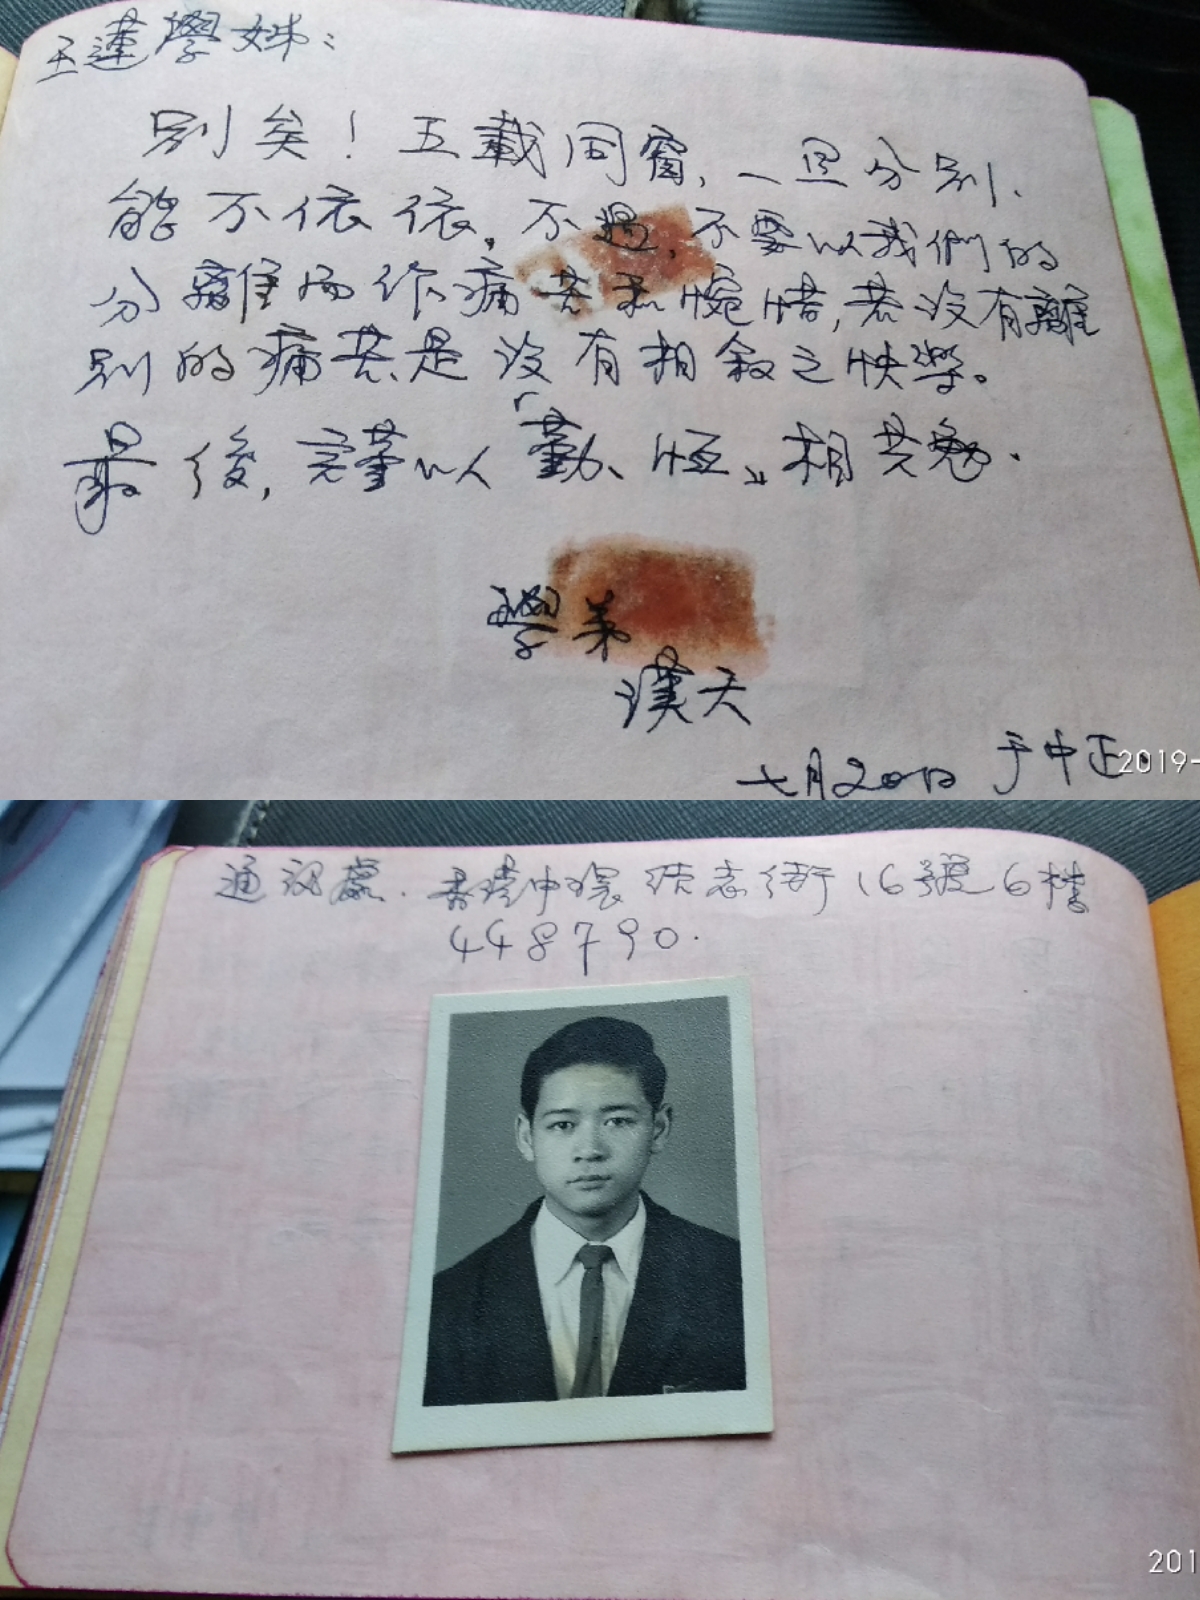 玉蓮學姊：
別矣！五載同窗，一旦分別、
能不依依。不過，不要以我們的
分離而作痛苦和惋惜，若沒有離
別的痛苦是沒有相敘之快樂。
最後，謹以「勤、恒」相共勉．
學弟
漢天
七月20日 于中正．
2019-
通訊處．香港中環結志街16號6樓
448790．
201